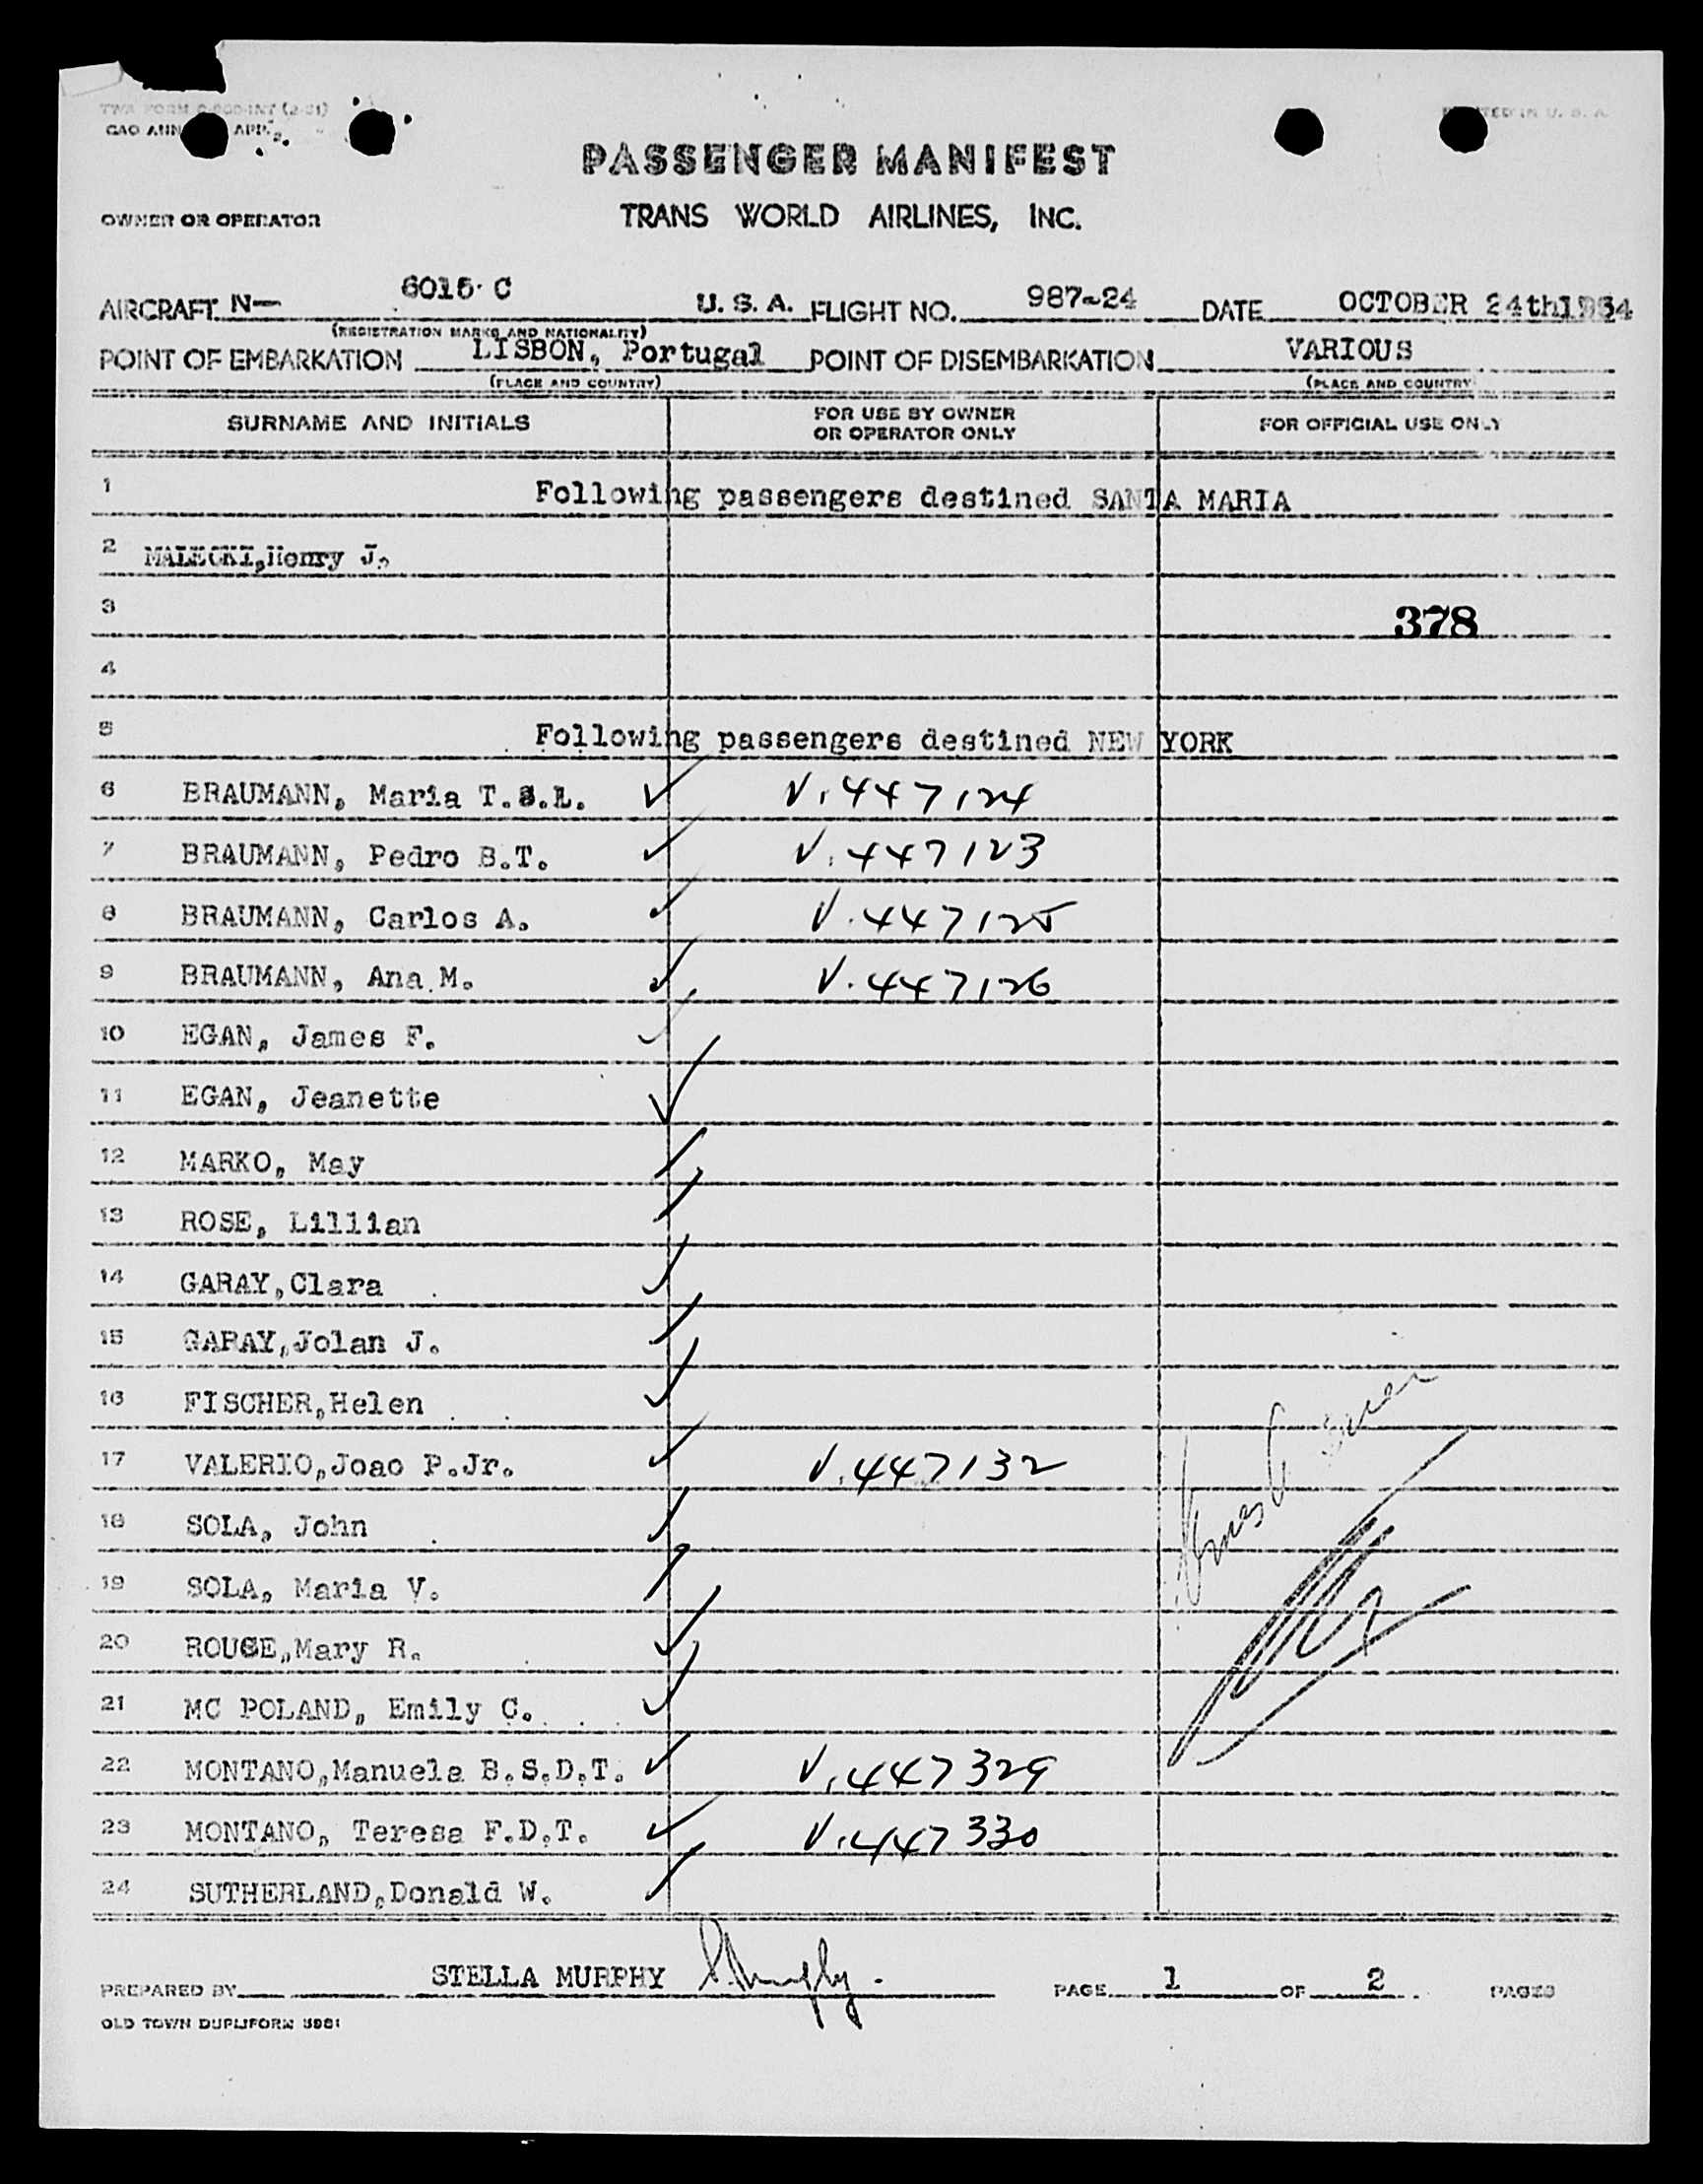 TWA FORM
GAO ANN APP.
PASSENGER MANIFEST
OWNER OR OPERATOR TRANS WORLD AIRLINES, INC.
AIRCRAFT N— 6015 C U. S. A. FLIGHT NO. 987-24 DATE OCTOBER 24th1954
(REGISTRATION MARKS AND NATIONALITY)
POINT OF EMBARKATION LISBON, Portugal POINT OF DISEMBARKATION VARIOUS
(PLACE AND COUNTRY) (PLACE AND COUNTRY
SURNAME AND INITIALS FOR USE BY OWNER OR OPERATOR ONLY FOR OFFICIAL USE ONLY
1 Following passengers destined SANTA MARIA
2 MALECKI,Henry J.
3 378
4
5 Following passengers destined NEW YORK
6 BRAUMANN, Maria T.S.L. ✓ V.447124
7 BRAUMANN, Pedro B.T. ✓ V.447123
8 BRAUMANN, Carlos A. ✓ V.447125
9 BRAUMANN, Ana M. ✓ V.447126
10 EGAN, James F. ✓
11 EGAN, Jeanette ✓
12 MARKO, May ✓
13 ROSE, Lillian ✓
14 GARAY,Clara ✓
15 GARAY,Jolan J. ✓
16 FISCHER,Helen ✓
17 VALERIO,Joao P.Jr. ✓ V.447132
18 SOLA, John ✓
19 SOLA, Maria V. ✓
20 ROUGE,Mary R. ✓
21 MC POLAND, Emily C. ✓
22 MONTANO,Manuela B.S.D.T. ✓ V.447329
23 MONTANO, Teresa F.D.T. ✓ V.447330
24 SUTHERLAND,Donald W. ✓
PREPARED BY STELLA MURPHY S.Murphy. PAGE 1 OF 2 PAGES
OLD TOWN DUPLIFORM